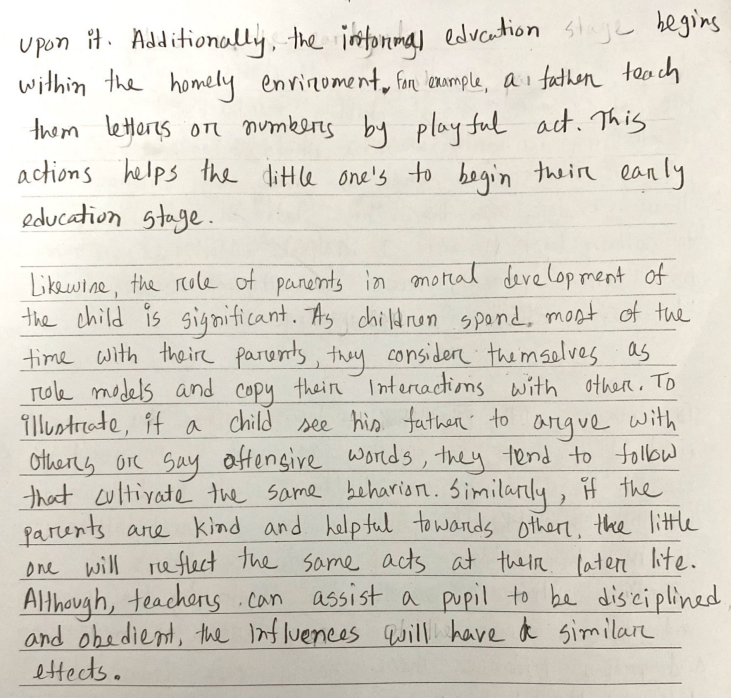 upon it. Additionally, the informal education stage begins
within the homely enviroment. For example, a father teach
them letters or numbers by playful act. This
actions helps the little one's to begin their early
education stage.
Likewise, the role of parents in moral development of
the child is significant. As children spend most of the
time with their parents, they consider themselves as
role models and copy their Interactions with other. To
illustrate, if a child see his father to argue with
others or say offensive words, they tend to follow
that cultivate the same behavior. Similarly, if the
parents are kind and helpful towards other, the little
one will reflect the same acts at their later life.
Although, teachers can assist a pupil to be disciplined
and obedient, the Influences will have similar
effects.